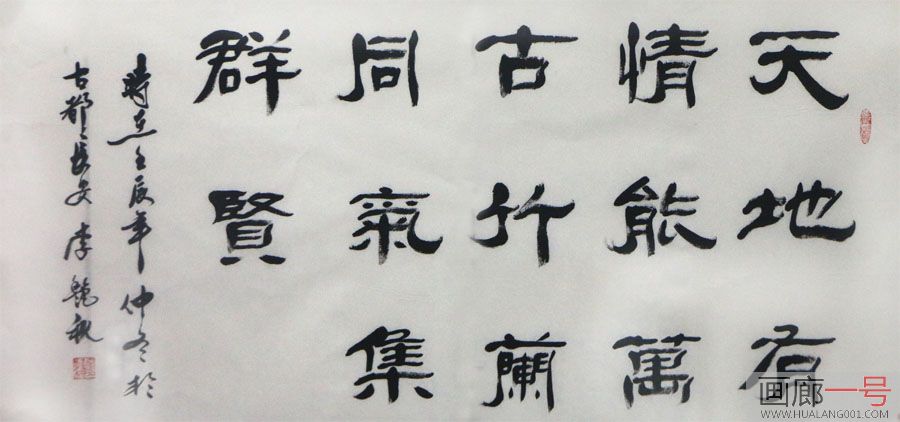 天地有
情能萬
古竹蘭
同氣集
群賢
時在壬辰年仲冬於
古都長安李秋
画廊一号
WWW.HUALANG001.COM